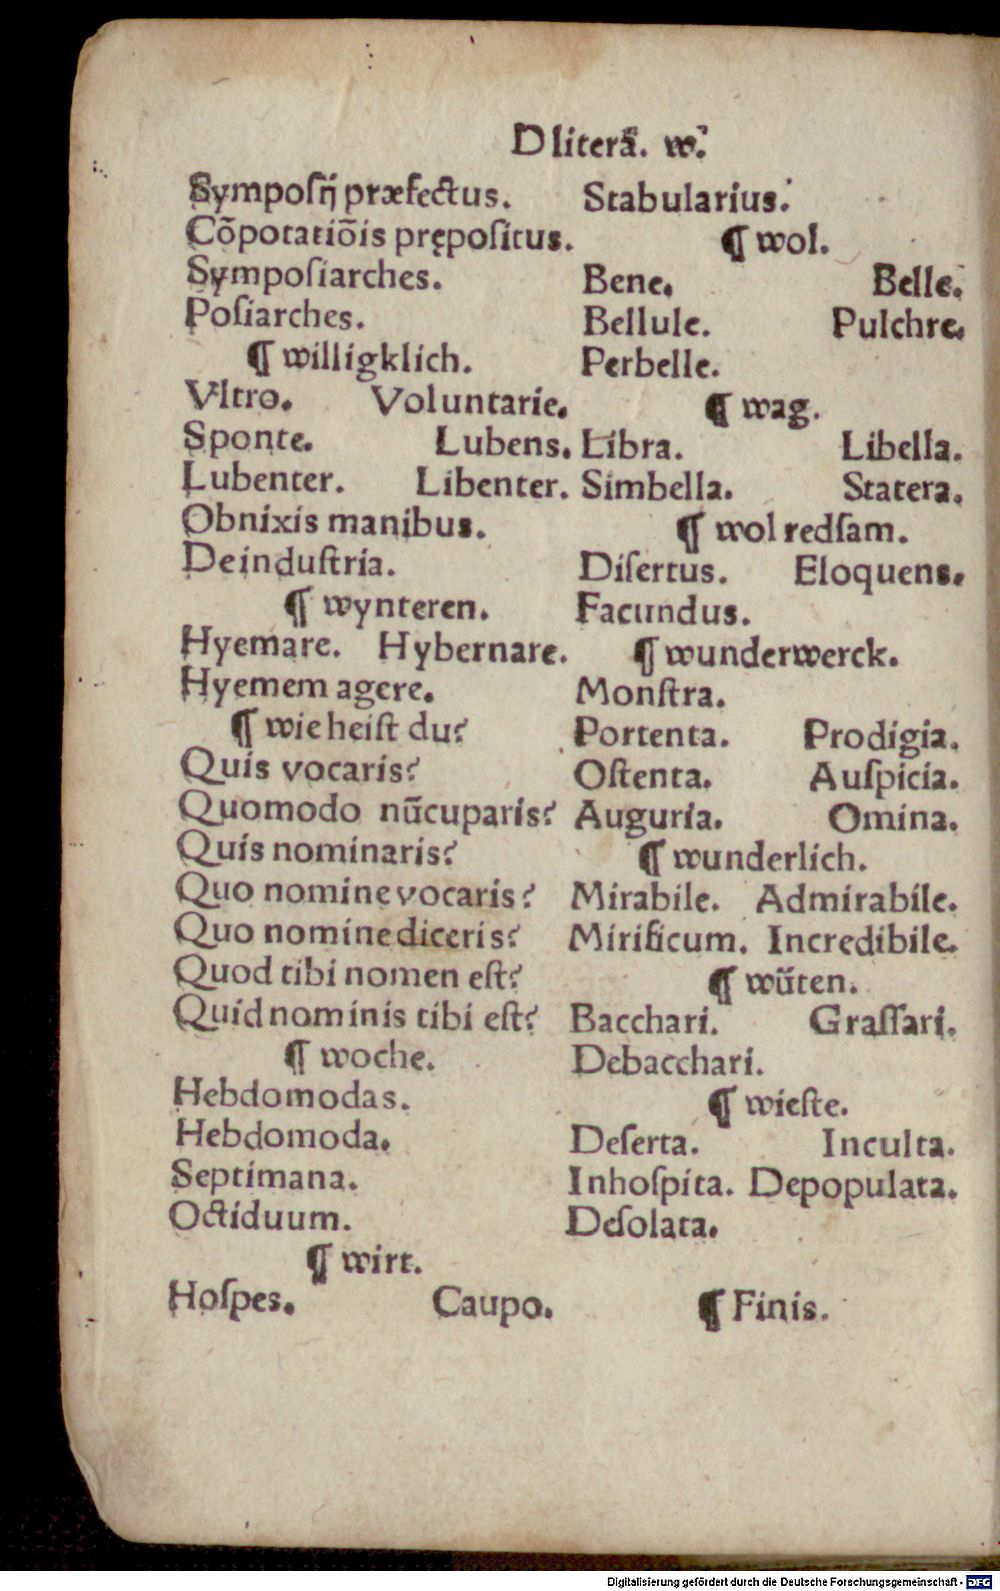 D literā. w.
Symposij præfectus.
Cōpotatiōis prępositus.
Symposiarches.
Posiarches.
¶ willigklich.
Vltro. Voluntarie.
Sponte. Lubens.
Lubenter. Libenter.
Obnixis manibus.
Deindustria.
¶ wynteren.
Hyemare. Hybernare.
Hyemem agere.
¶ wie heist du?
Quis vocaris?
Quomodo nūcuparis?
Quis nominaris?
Quo nomine vocaris?
Quo nomine diceris?
Quod tibi nomen est?
Quid nominis tibi est?
¶ woche.
Hebdomodas.
Hebdomoda.
Septimana.
Octiduum.
¶ wirt.
Hospes. Caupo.
Stabularius.
¶ wol.
Bene. Belle.
Bellule. Pulchre.
Perbelle.
¶ wag.
Libra. Libella.
Simbella. Statera.
¶ wol redsam.
Disertus. Eloquens.
Facundus.
¶ wunderwerck.
Monstra.
Portenta. Prodigia.
Ostenta. Auspicia.
Auguria. Omina.
¶ wunderlich.
Mirabile. Admirabile.
Mirificum. Incredibile.
¶ wüten.
Bacchari. Grassari.
Debacchari.
¶ wieste.
Deserta. Inculta.
Inhospita. Depopulata.
Desolata.
¶ Finis.
Digitalisierung gefördert durch die Deutsche Forschungsgemeinschaft - DFG